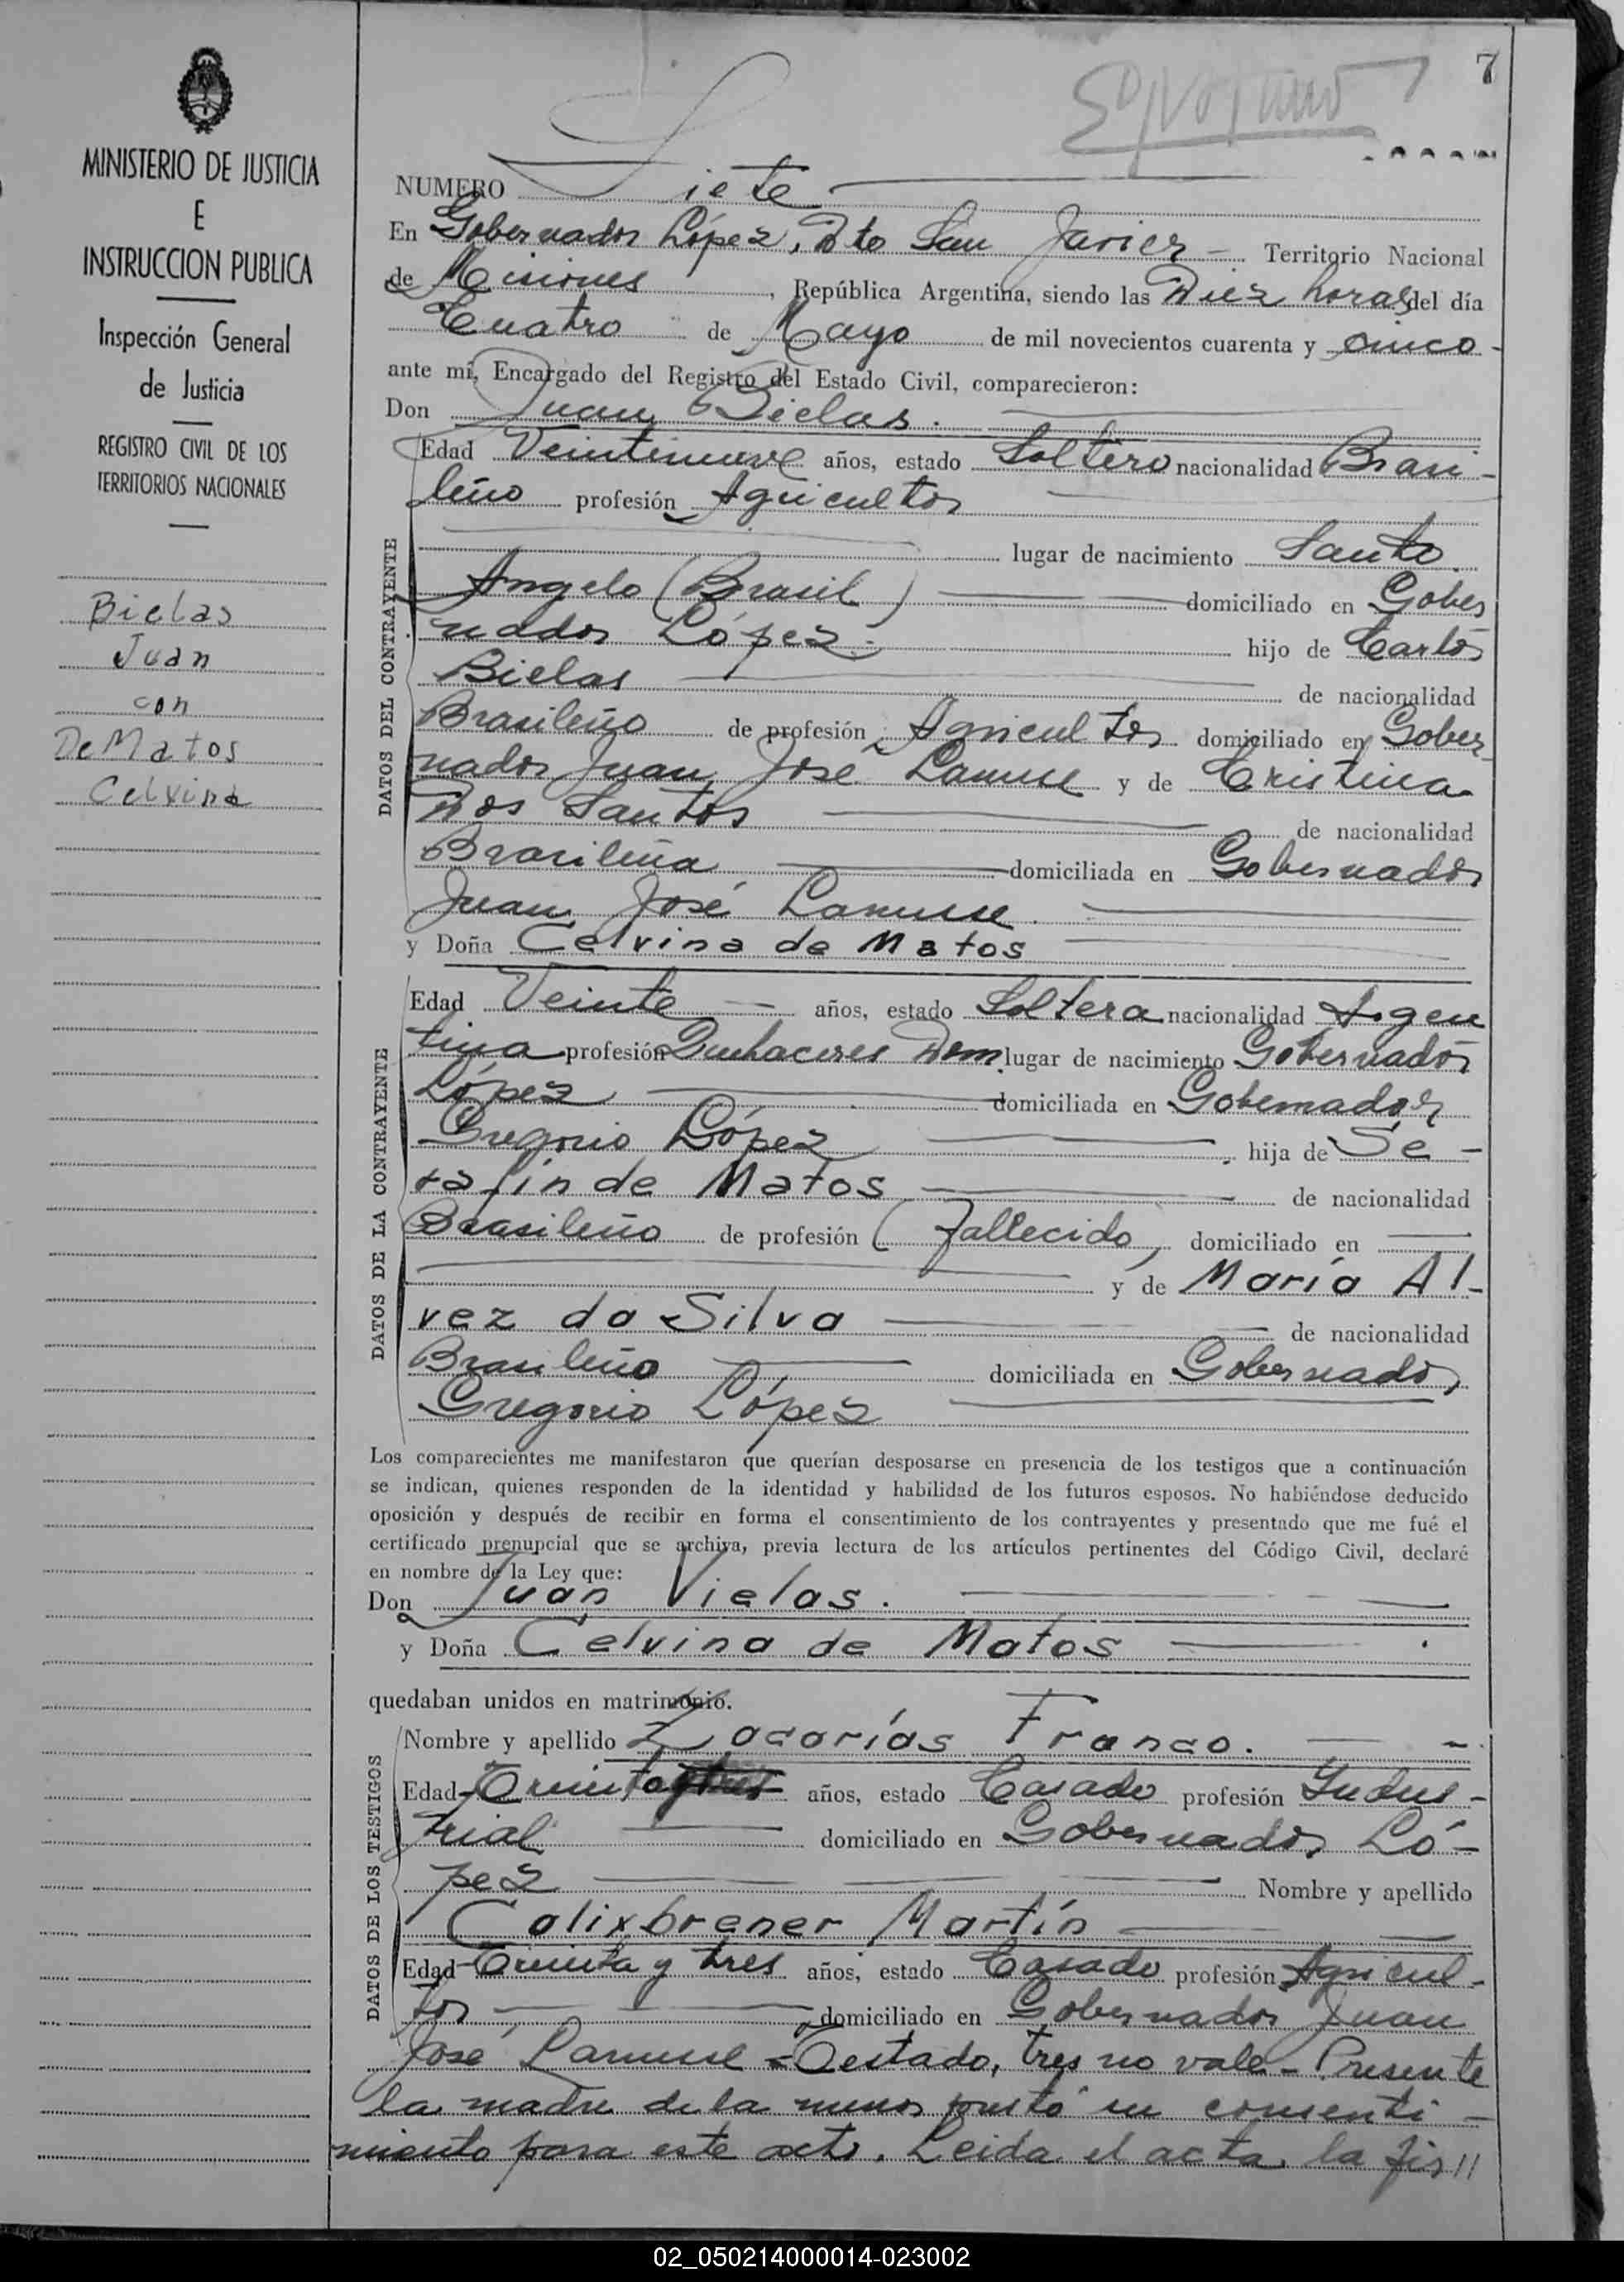 7
MINISTERIO DE JUSTICIA
E
INSTRUCCION PUBLICA
Inspección General
de Justicia
REGISTRO CIVIL DE LOS
TERRITORIOS NACIONALES
Bielas
Juan
con
De Matos
Celvina
NUMERO Siete
En Gobernador López, Dto San Javier - Territorio Nacional
de Misiones, República Argentina, siendo las Diez horas del día
Cuatro de Mayo de mil novecientos cuarenta y cinco -
ante mí, Encargado del Registro del Estado Civil, comparecieron:
Don Juan Bielas.
DATOS DEL CONTRAYENTE
Edad Veintinueve años, estado Soltero nacionalidad Brasi-
leño profesión Agricultor
lugar de nacimiento Santo
Angelo (Brasil) domiciliado en Gober
nador López. hijo de Carlos
Bielas de nacionalidad
Brasileño de profesión Agricultor domiciliado en Gober-
nador Juan José Lanusse y de Cristina
Dos Santos de nacionalidad
Brasileña domiciliada en Gobernador
Juan José Lanusse.
y Doña Celvina de Matos
DATOS DE LA CONTRAYENTE
Edad Veinte años, estado Soltera nacionalidad Argen
tina profesión Quehaceres Dom. lugar de nacimiento Gobernador
López domiciliada en Gobernador
Gregorio López hija de Se-
rafin de Matos de nacionalidad
Brasileño de profesión (Fallecido) domiciliado en
y de María Al-
vez da Silva de nacionalidad
Brasileña domiciliada en Gobernador
Gregorio López
Los comparecientes me manifestaron que querían desposarse en presencia de los testigos que a continuación
se indican, quienes responden de la identidad y habilidad de los futuros esposos. No habiéndose deducido
oposición y después de recibir en forma el consentimiento de los contrayentes y presentado que me fué el
certificado prenupcial que se archiva, previa lectura de los artículos pertinentes del Código Civil, declaré
en nombre de la Ley que:
Don Juan Vielas.
y Doña Celvina de Matos
quedaban unidos en matrimonio.
DATOS DE LOS TESTIGOS
Nombre y apellido Zacarías Franco.
Edad Treinta y tres años, estado Casado profesión Indus-
trial domiciliado en Gobernador Ló-
pez Nombre y apellido
Calixbrener Martín
Edad Treinta y tres años, estado Casado profesión Agricul-
tor domiciliado en Gobernador Juan
José Lanusse = Testado, tres no vale - Presente
la madre de la menor prestó su consenti-
miento para este acto. Leida el acta, la fir//
02_050214000014-023002